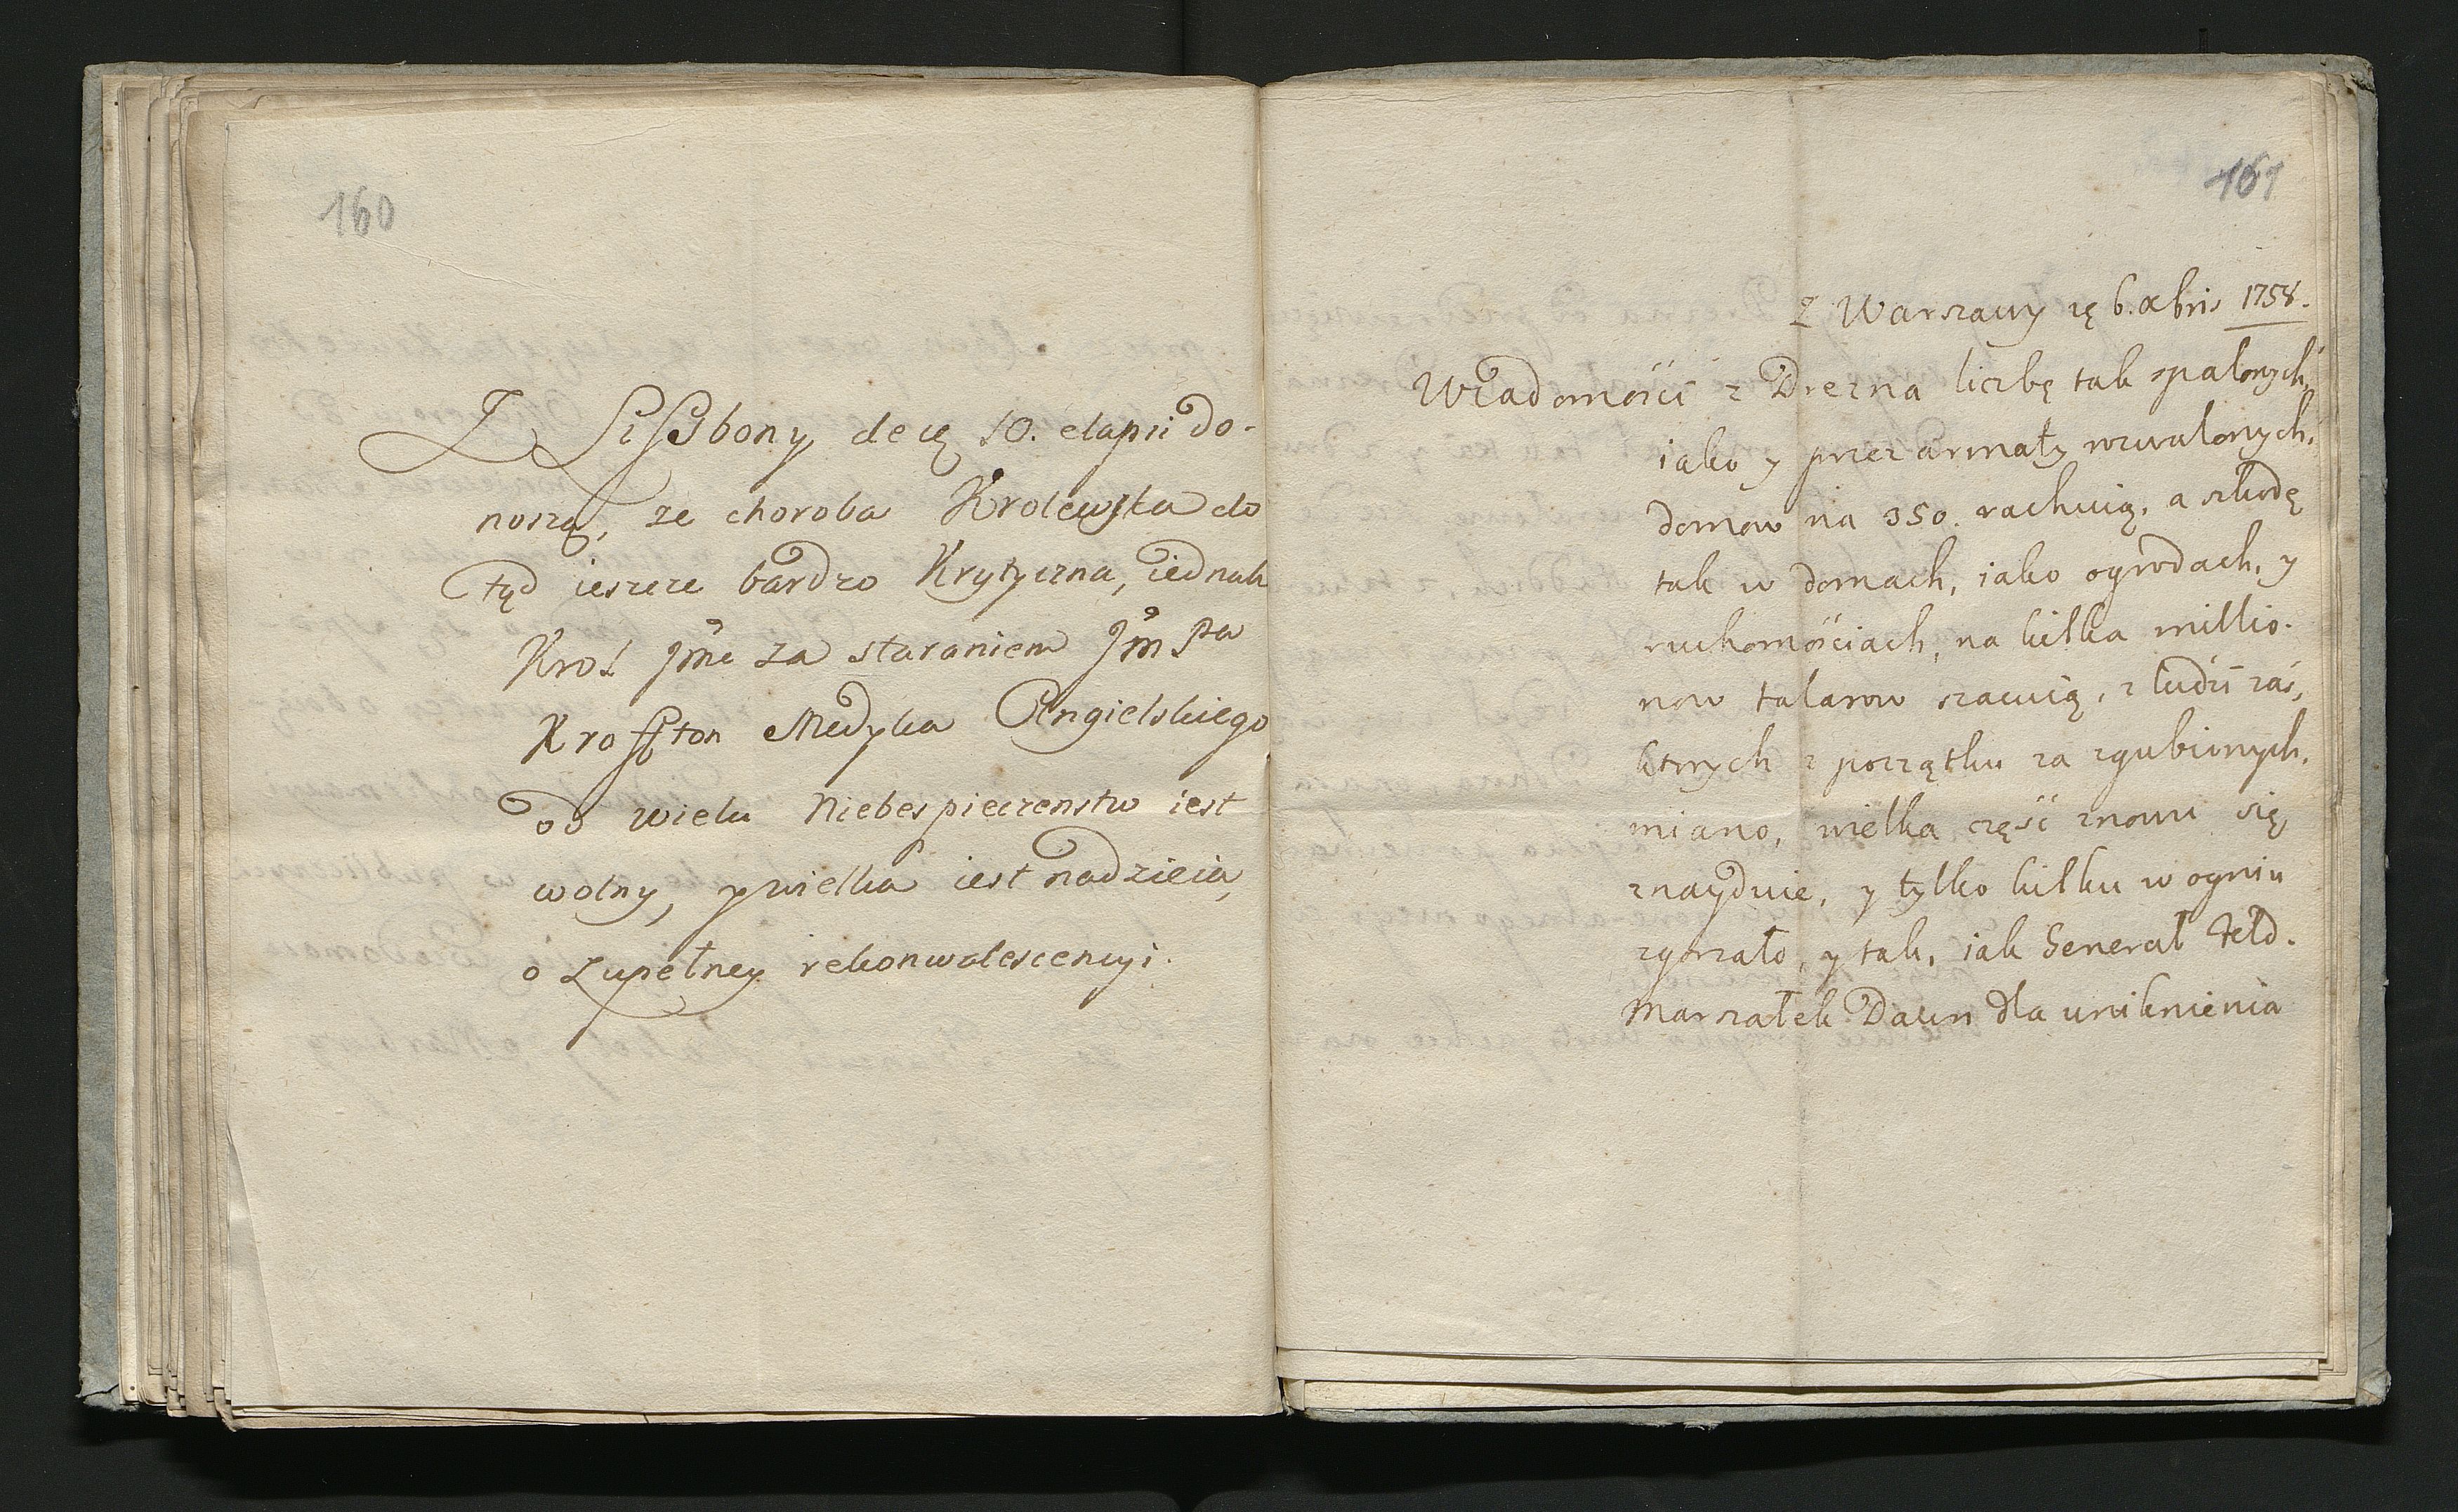 160
Z Lissbony de 10. elapsi do-
noszą, ze choroba Krolewska do
tąd ieszcze bardzo Krytyczna, iednak
Krol Jmc za staraniem Jm Pa
Kroffton Medyka Angielskiego
od wielu Niebespieczenstw iest
wolny, y wielka iest nadzieia,
o zupełney rekonwalescencyi.
161
Z Warszawy 6. Xbris 1758.
Wiadomości z Drezna liczbę tak spalonych,
iako y przez armaty rozwalonych,
domow na 350. rachuią, a szkodę
tak w domach, iako ogrodach, y
ruchomościach, na kilka millio-
now talarow szacuią, z ludzi zaś,
ktorych z początku za zgubionych,
miano, wielka część znowu się
znayduie, y tylko kilku w ogniu
zgorzało, y tak, iak General Feld-
Marszałek Daun dla uniknienia